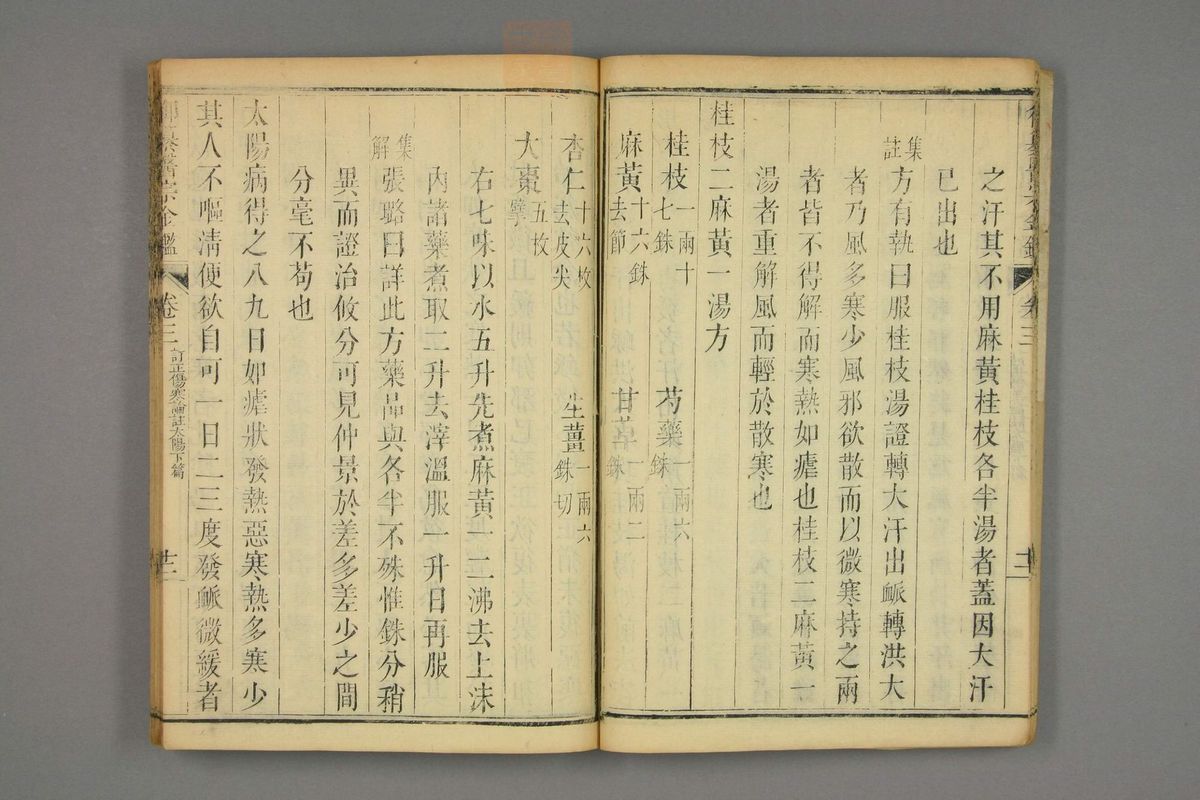 之汗其不用麻黃桂枝各半湯者蓋因大汗
已出也
集註
方有執曰服桂枝湯證轉大汗出脈轉洪大
者乃風多寒少風邪欲散而以微寒持之兩
者皆不得解而寒熱如瘧也桂枝二麻黃一
湯者重解風而輕於散寒也
桂枝二麻黃一湯方
桂枝一兩十七銖
芍藥一兩六銖
麻黃十六銖去節
甘草一兩二銖
杏仁十六枚去皮尖
生薑一兩六銖切
大棗五枚擘
右七味以水五升先煮麻黃一二沸去上沫
內諸藥煮取二升去滓溫服一升日再服
集解
張璐曰詳此方藥品與各半不殊惟銖分稍
異而證治攸分可見仲景於差多差少之間
分毫不苟也
太陽病得之八九日如瘧狀發熱惡寒熱多寒少
其人不嘔清便欲自可一日二三度發脈微緩者
醫宗金鑑
卷三
訂正傷寒論註太陽下篇